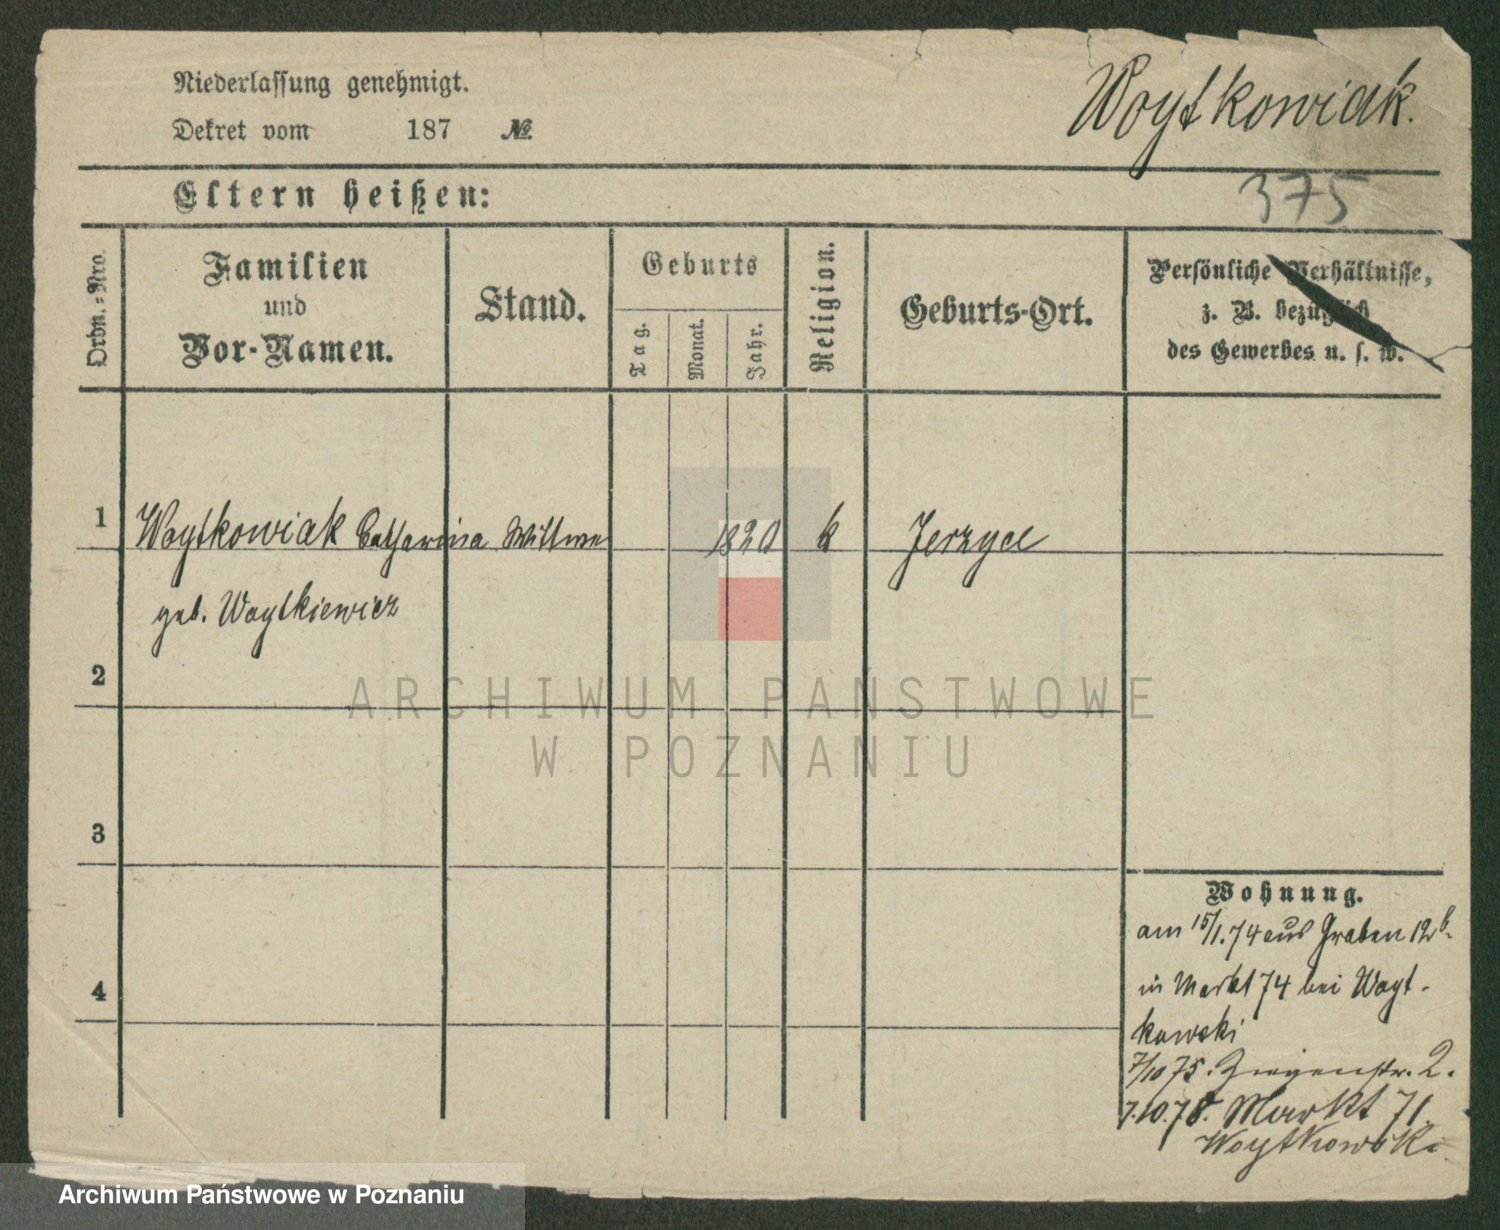 Niederlassung genehmigt.
Dekret vom 187 №
Woytkowiak.
375
Eltern heißen:
Ordn.=Nro.
Familien
und
Vor-Namen.
Stand.
Geburts
Tag.
Monat.
Jahr.
Religion.
Geburts-Ort.
Persönliche Verhältnisse,
z. B. bezüglich
des Gewerbes u. s. w.
1 Woytkowiak Catharina Wittwe 1820 k Jerzyce
geb. Woytkiewicz
2
3
4
Wohnung.
am 15/1.74 aus Graben 12b.
in Markt 74 bei Woyt-
kowski
7/10 75. Ziegenstr. 2.
7.10.78. Markt 71.
Woytkowski.
ARCHIWUM PAŃSTWOWE
W POZNANIU
Archiwum Państwowe w Poznaniu